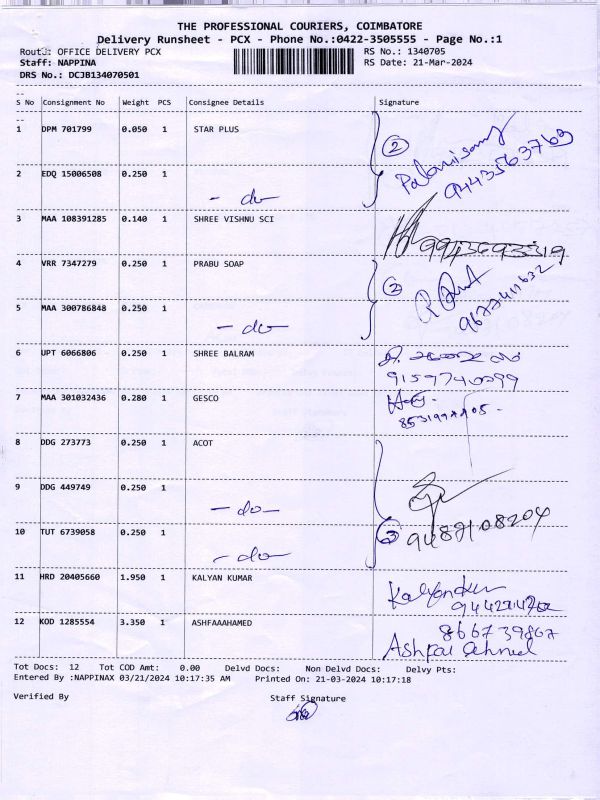 THE PROFESSIONAL COURIERS, COIMBATORE
Delivery Runsheet - PCX - Phone No.:0422-3505555 - Page No.:1
Route: OFFICE DELIVERY PCX RS No.: 1340705
Staff: NAPPINA RS Date: 21-Mar-2024
DRS No.: DCJB134070501
S No Consignment No Weight PCS Consignee Details Signature
1 DPM 701799 0.050 1 STAR PLUS
2 Palanisamy 9443563763
2 EDQ 15006508 0.250 1 - do -
3 MAA 108391285 0.140 1 SHREE VISHNU SCI 9943693319
4 VRR 7347279 0.250 1 PRABU SOAP
2 9677411632
5 MAA 300786848 0.250 1 - do -
6 UPT 6066806 0.250 1 SHREE BALRAM
9159740099
7 MAA 301032436 0.280 1 GESCO
8 DDG 273773 0.250 1 ACOT
9 DDG 449749 0.250 1 - do -
10 TUT 6739058 0.250 1 - do - 3 9489108204
11 HRD 20405660 1.950 1 KALYAN KUMAR
12 KOD 1285554 3.350 1 ASHFAAAHAMED 866739867
Tot Docs: 12 Tot COD Amt: 0.00 Delvd Docs: Non Delvd Docs: Delvy Pts:
Entered By :NAPPINAX 03/21/2024 10:17:35 AM Printed On: 21-03-2024 10:17:18
Verified By Staff Signature